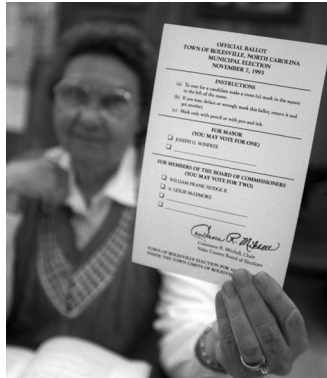 OFFICIAL BALLOT
TOWN OF ROLESVILLE, NORTH CAROLINA
MUNICIPAL ELECTION
NOVEMBER 7, 1995
INSTRUCTIONS
(a) To vote for a candidate make a cross (x) mark in the square
to the left of the name.
(b) If you tear, deface or wrongly mark this ballot, return it and
get another.
(c) Mark only with pencil or with pen and ink.
FOR MAYOR
(YOU MAY VOTE FOR ONE)
JOSEPH G. WINFREE
FOR MEMBERS OF THE BOARD OF COMMISSIONERS
(YOU MAY VOTE FOR TWO)
WILLIAM FRANK HODGE II
A. LESLIE McLEMORE
Constance R. Mitchell, Chair
Wake County Board of Elections
TOWN OF ROLESVILLE ELECTION FOR
INSIDE THE TOWN LIMITS OF